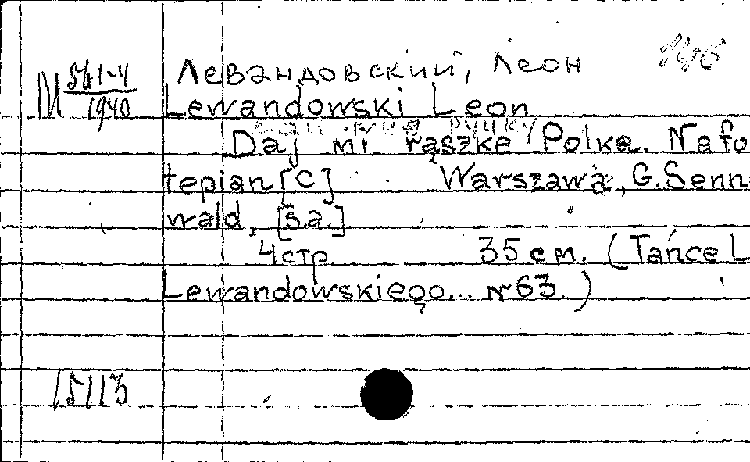 М 561-4/1940
Левандовский, Леон
Lewandowski Leon
ручку
Daj mi rączkę Polka. Na fo
tepian [C] Warszawa, G. Senne
wald, [s.a.]
4 стр. 35 см. (Tańce L
Lewandowskiego... № 63.)
15113